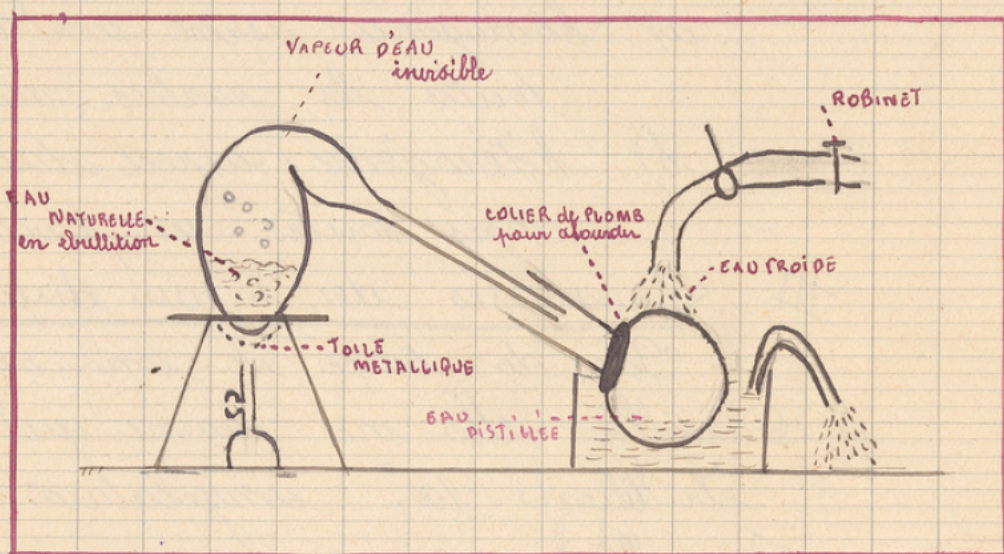 VAPEUR D'EAU
invisible
ROBINET
EAU
NATURELLE
en ebullition
COLIER de PLOMB
pour alourdir
EAU FROIDE
TOILE
METALLIQUE
EAU
DISTILLÉE